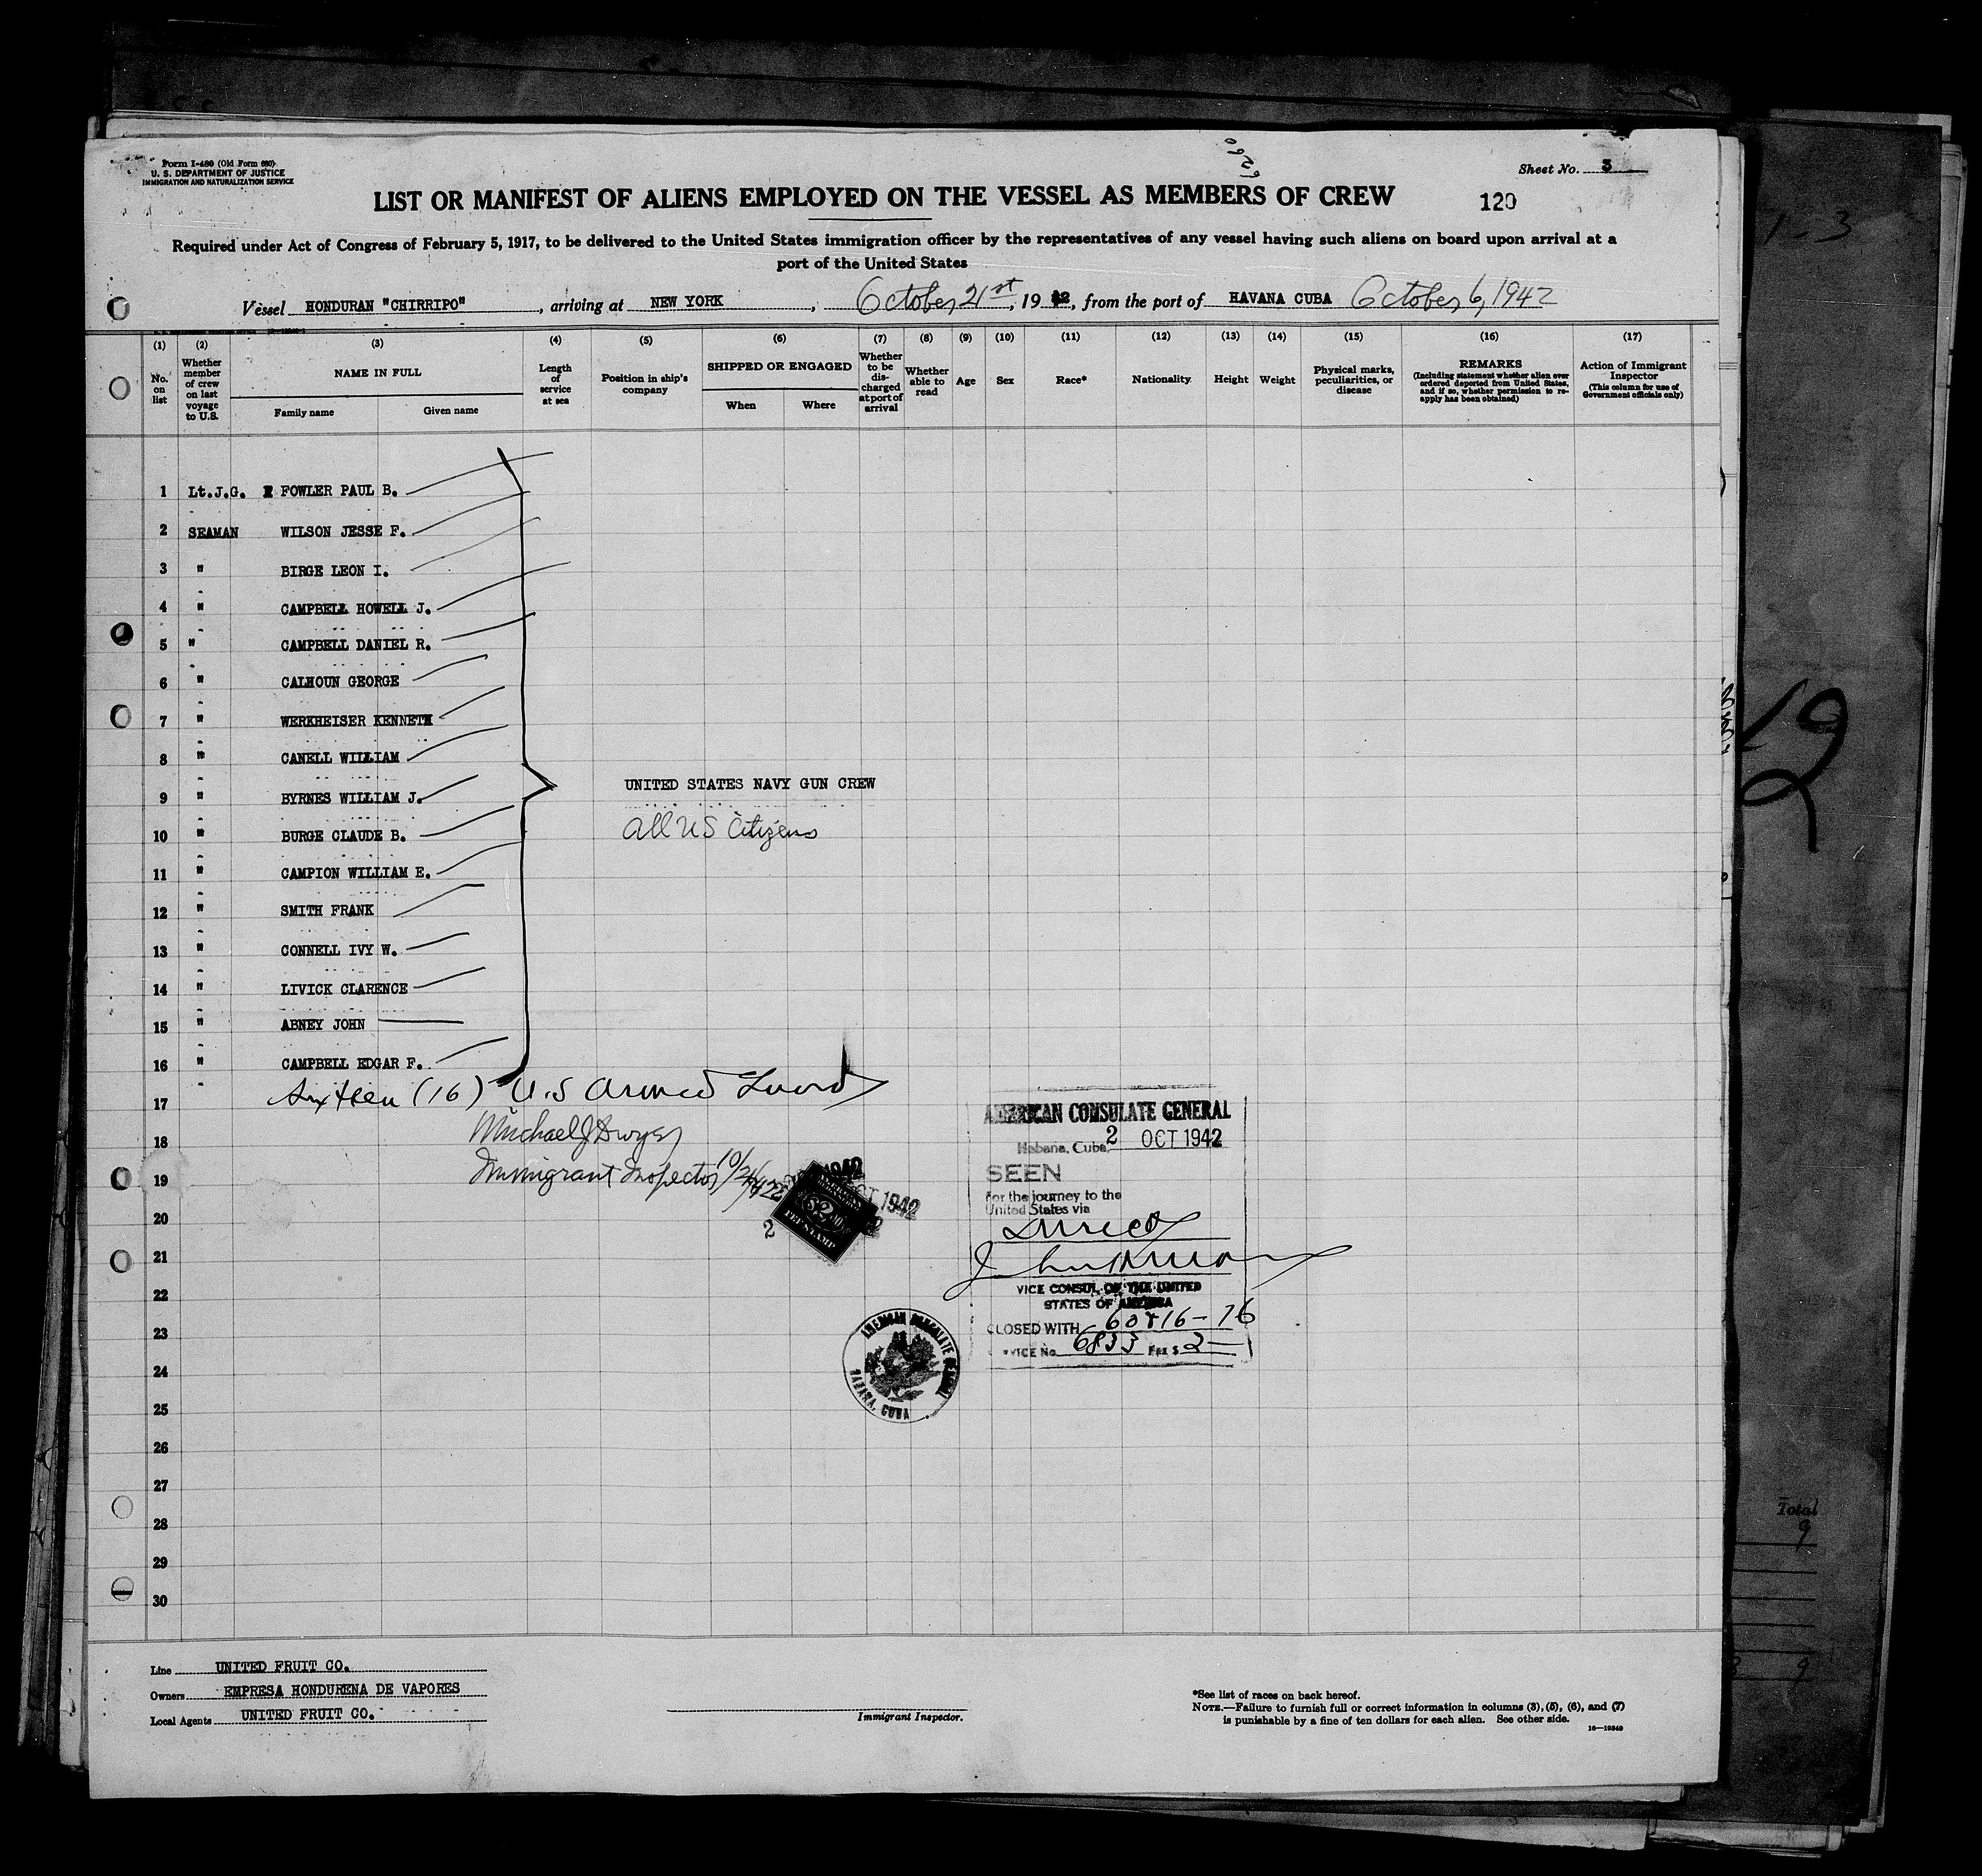 Form I-480 (Old Form 680)
U. S. DEPARTMENT OF JUSTICE
IMMIGRATION AND NATURALIZATION SERVICE
Sheet No. 3
LIST OR MANIFEST OF ALIENS EMPLOYED ON THE VESSEL AS MEMBERS OF CREW
120
Required under Act of Congress of February 5, 1917, to be delivered to the United States immigration officer by the representatives of any vessel having such aliens on board upon arrival at a
port of the United States
Vessel HONDURAN "CHIRRIPO", arriving at NEW YORK, October 21st, 19 42, from the port of HAVANA CUBA October 6, 1942
(1) No. on list
(2) Whether member of crew on last voyage to U.S.
(3) NAME IN FULL Family name Given name
(4) Length of service at sea
(5) Position in ship's company
(6) SHIPPED OR ENGAGED When Where
(7) Whether to be discharged at port of arrival
(8) Whether able to read
(9) Age
(10) Sex
(11) Race*
(12) Nationality
(13) Height
(14) Weight
(15) Physical marks, peculiarities, or disease
(16) REMARKS (Including statement whether alien ever ordered deported from United States, and if so, whether permission to re-apply has been obtained)
(17) Action of Immigrant Inspector (This column for use of Government officials only)
1 Lt.J.G. FOWLER PAUL B.
2 SEAMAN WILSON JESSE F.
3 " BIRGE LEON I.
4 " CAMPBELL HOWELL J.
5 " CAMPBELL DANIEL R.
6 " CALHOUN GEORGE
7 " WERKHEISER KENNETH
8 " CANELL WILLIAM
UNITED STATES NAVY GUN CREW
9 " BYRNES WILLIAM J.
10 " BURGE CLAUDE B.
All US Citizens
11 " CAMPION WILLIAM E.
12 " SMITH FRANK
13 " CONNELL IVY W.
14 " LIVICK CLARENCE
15 " ABNEY JOHN
16 " CAMPBELL EDGAR F.
Sixteen (16) U.S Armed Guard
17
18
Michael J Dwyer
19
Immigrant Inspector 10/21/42
20
21
22
23
24
25
26
27
28
29
30
AMERICAN CONSULATE GENERAL
Habana, Cuba, 2 OCT 1942
SEEN
for the journey to the
United States via
Direct
VICE CONSUL OF THE UNITED
STATES OF AMERICA
CLOSED WITH 60816-16
SERVICE No. 6833 FEE $ 2—
$2.00
FEE STAMP
OCT 1942
AMERICAN CONSULATE GENERAL
HABANA, CUBA
Line UNITED FRUIT CO.
Owners EMPRESA HONDURENA DE VAPORES
Local Agents UNITED FRUIT CO.
Immigrant Inspector.
*See list of races on back hereof.
NOTE.—Failure to furnish full or correct information in columns (3), (5), (6), and (7)
is punishable by a fine of ten dollars for each alien. See other side.
16—19349
1-3
19
2
Total
9
9